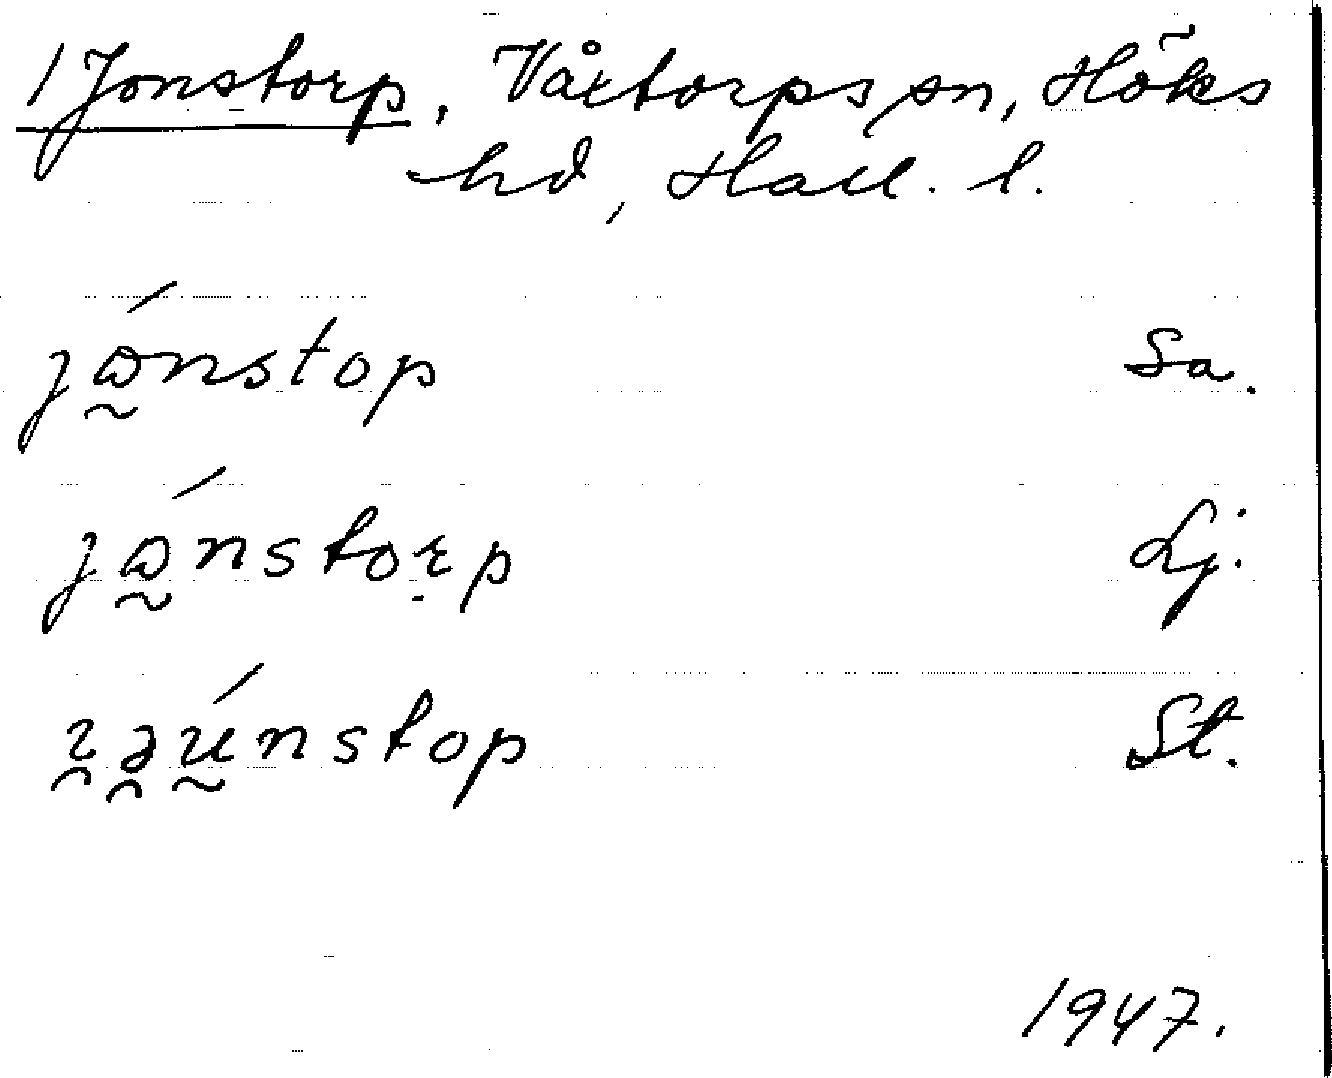 1 Jonstorp, Våxtorps sn, Höks
hd, Hall. l.
jɷ́nstop Sa.
jɷ́nstorp Lj.
ɿəúnstop St.
1947.